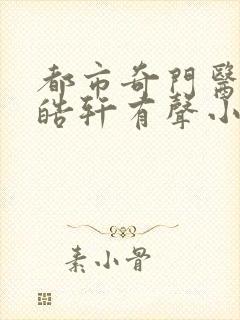 都市奇門醫
皓軒有聲小
素小骨